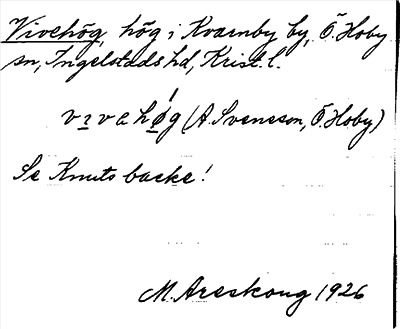 Vivehög, hög i Kvarnby by, Ö. Hoby
sn, Ingelstads hd, Krist. l.
vɪvahǿg (A. Svensson, Ö. Hoby)
Se Knuts backe!
M. Areskoug 1926